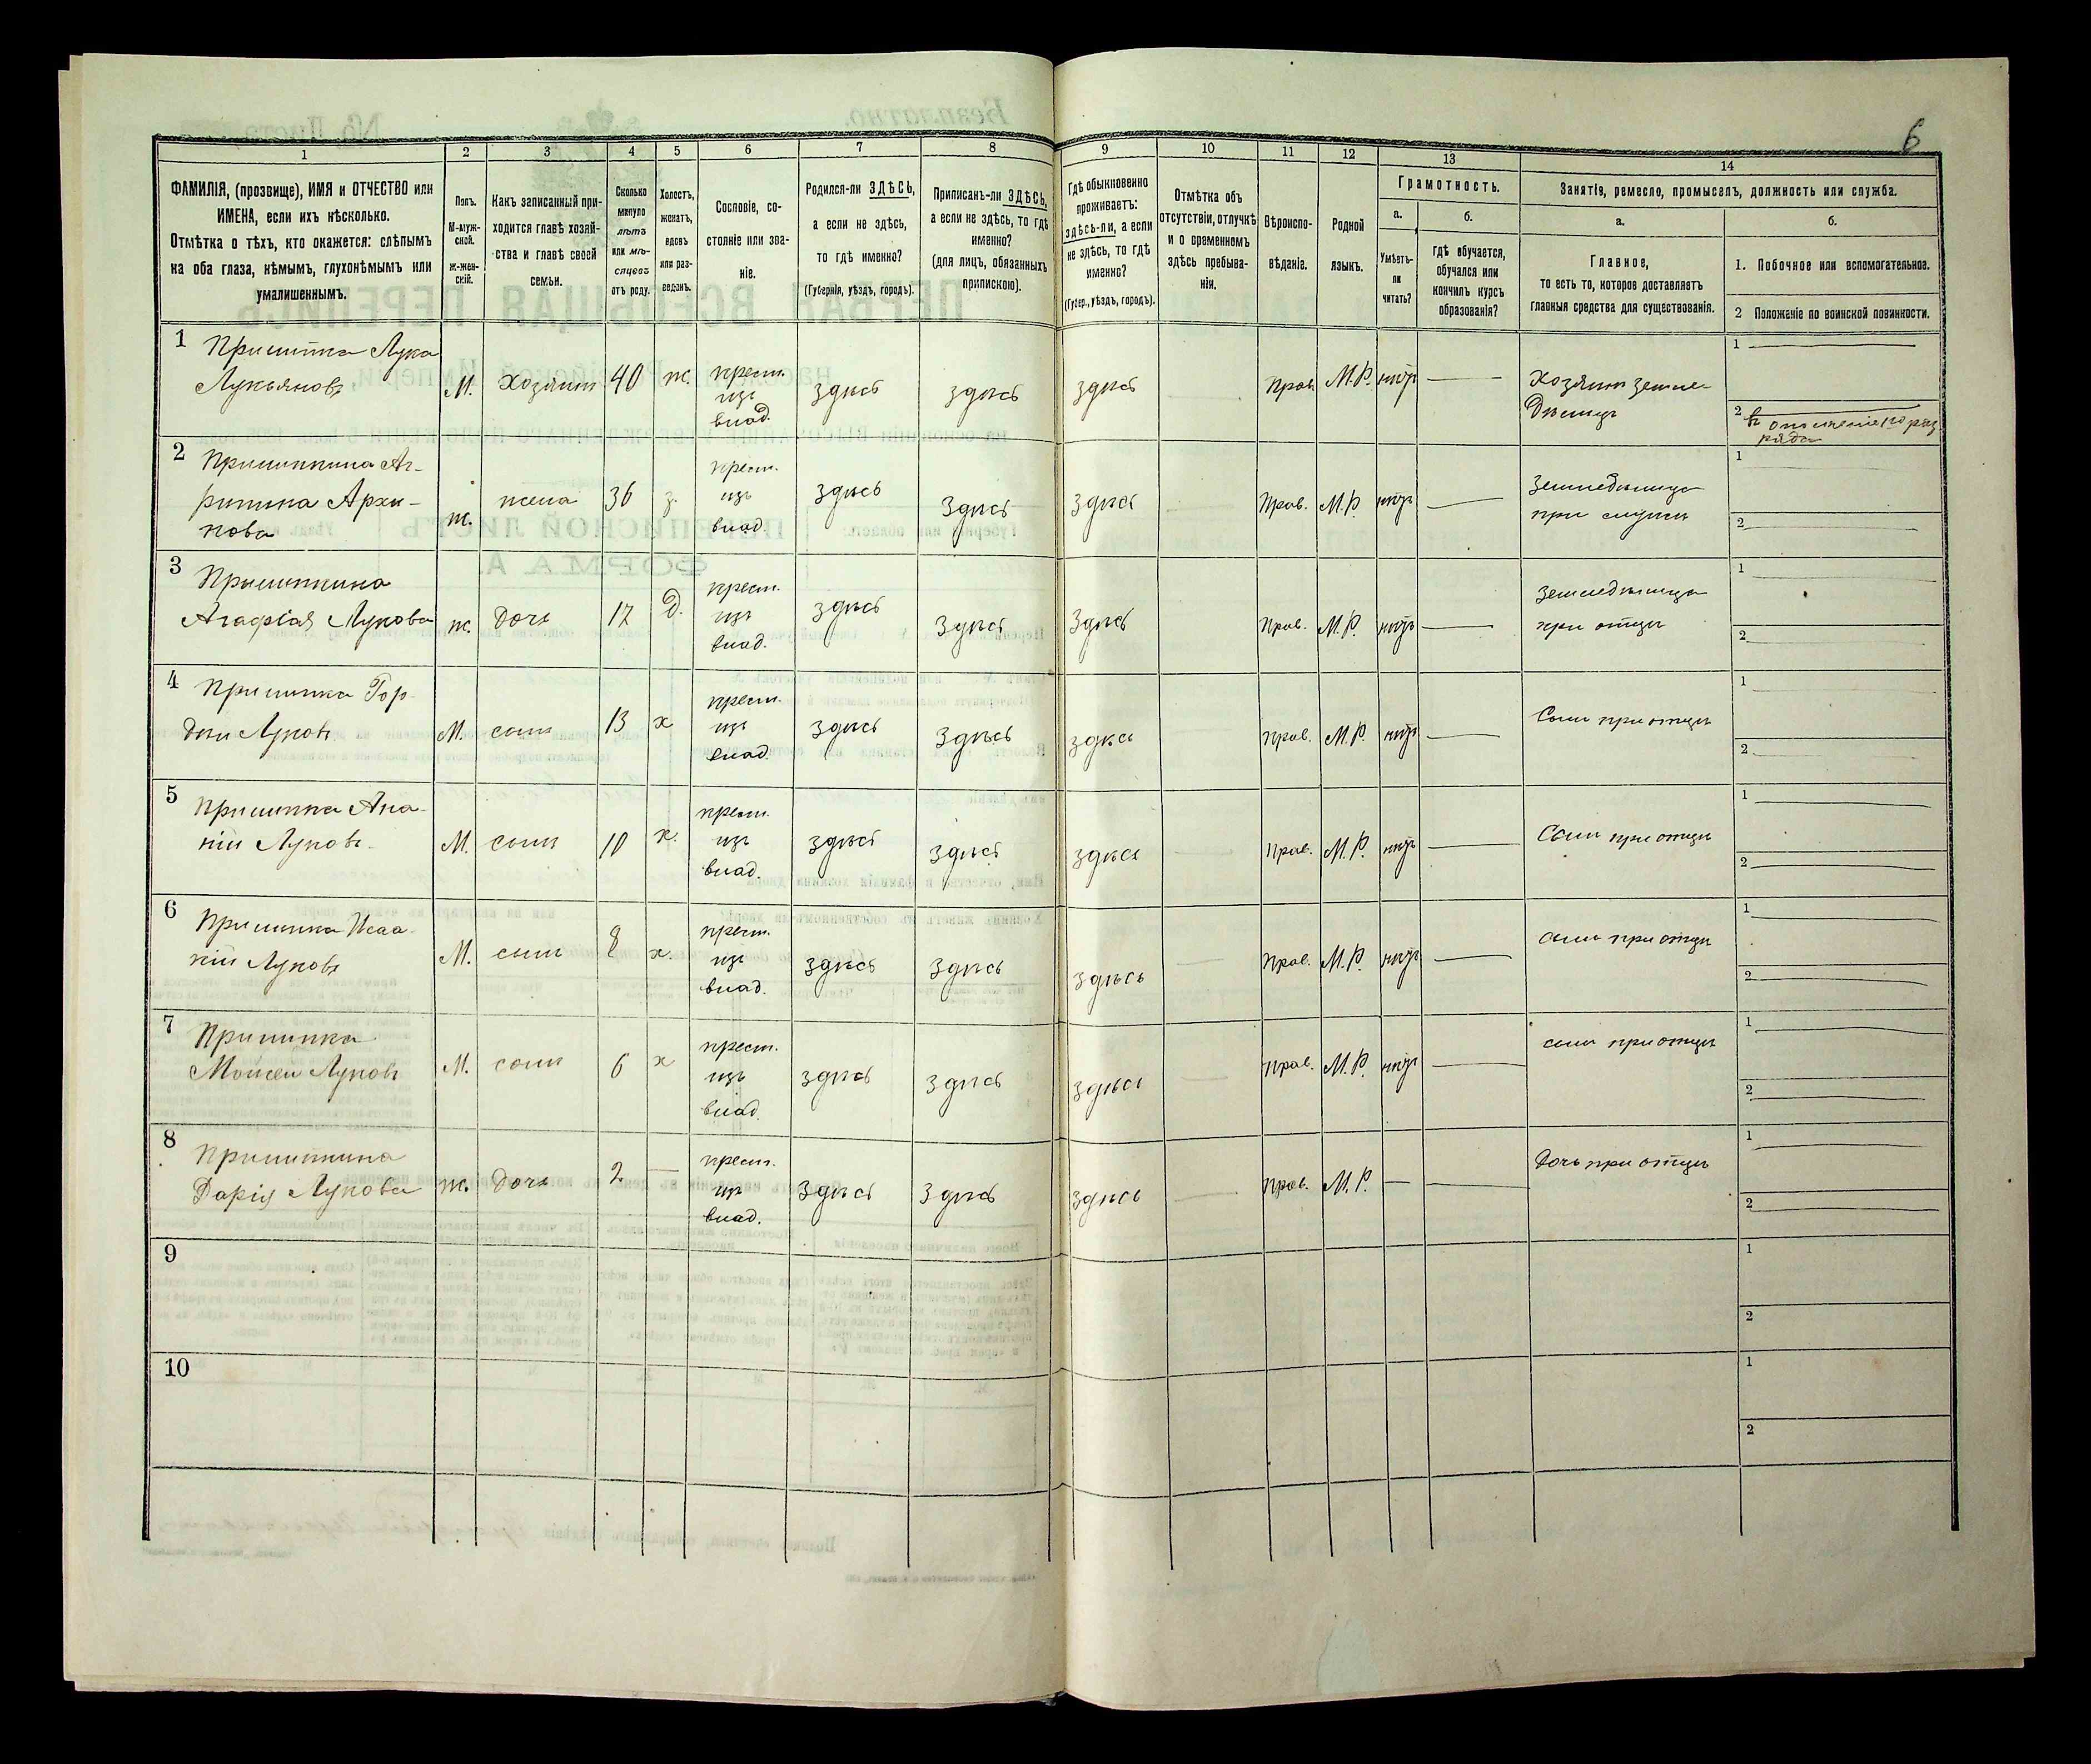 6
1 2 3 4 5 6 7 8 9 10 11 12 13 14
ФАМИЛІЯ, (прозвище), ИМЯ и ОТЧЕСТВО или
ИМЕНА, если ихъ нѣсколько.
Отмѣтка о тѣхъ, кто окажется: слѣпымъ
на оба глаза, нѣмымъ, глухонѣмымъ или
умалишеннымъ.
Полъ.
М-муж-
ской.
Ж-жен-
скій.
Какъ записанный при-
ходится главѣ хозяй-
ства и главѣ своей
семьи.
Сколько
минуло
лѣтъ
или мѣ-
сяцевъ
отъ роду.
Холостъ,
женатъ,
вдовъ
или раз-
веденъ.
Сословіе, со-
стояніе или зва-
ніе.
Родился-ли ЗДѢСЬ,
а если не здѣсь,
то гдѣ именно?
(Губернія, уѣздъ, городъ).
Приписанъ-ли ЗДѢСЬ,
а если не здѣсь, то гдѣ
именно?
(для лицъ, обязанныхъ
припискою).
Гдѣ обыкновенно
проживаетъ:
здѣсь-ли, а если
не здѣсь, то гдѣ
именно?
(Губер., уѣздъ, городъ).
Отмѣтка объ
отсутствіи, отлучкѣ
и о временномъ
здѣсь пребыва-
ніи.
Вѣроиспо-
вѣданіе.
Родной
языкъ.
Грамотность.
а.
Умѣетъ-
ли
читать?
б.
Гдѣ обучается,
обучался или
кончилъ курсъ
образованія?
Занятія, ремесло, промыселъ, должность или служба.
а.
Главное,
то есть то, которое доставляетъ
главныя средства для существованія.
б.
1. Побочное или вспомогательное.
2 Положеніе по воинской повинности.
1 Пришипка Лука
Лукьяновъ М. Хозяинъ 40 ж. крест. изъ влад. здѣсь здѣсь здѣсь Прав. М.Р. нѣтъ Хозяинъ земле-
дѣлецъ
1
2 въ ополченіе 1го раз
ряда
2 Пришипкина Аг-
рипина Архи-
пова ж. жена 36 з. крест. изъ влад. здѣсь здѣсь здѣсь Прав. М.Р. нѣтъ Земледѣлица
при мужѣ
1
2
3 Прышипкина
Агафія Лукова ж. дочь 17 д. крест. изъ влад. здѣсь здѣсь здѣсь Прав. М.Р. нѣтъ Земледѣлица
при отцѣ
1
2
4 Пришипка Гор-
дѣй Луковъ М. сынъ 13 х крест. изъ влад. здѣсь здѣсь здѣсь Прав. М.Р. нѣтъ Сынъ при отцѣ
1
2
5 Пришипка Ана-
ній Луковъ М. сынъ 10 х. крест. изъ влад. здѣсь здѣсь здѣсь Прав. М.Р. нѣтъ Сынъ при отцѣ
1
2
6 Пришипка Исаа-
кій Луковъ М. сынъ 8 х. крест. изъ влад. здѣсь здѣсь здѣсь Прав. М.Р. нѣтъ сынъ при отцѣ
1
2
7 Пришипка
Моисей Луковъ М. сынъ 6 х крест. изъ влад. здѣсь здѣсь здѣсь Прав. М.Р. нѣтъ сынъ при отцѣ
1
2
8 Пришипкина
Дарія Лукова ж. дочь 2 крест. изъ влад. здѣсь здѣсь здѣсь Прав. М.Р. Дочь при отцѣ
1
2
9
1
2
10
1
2